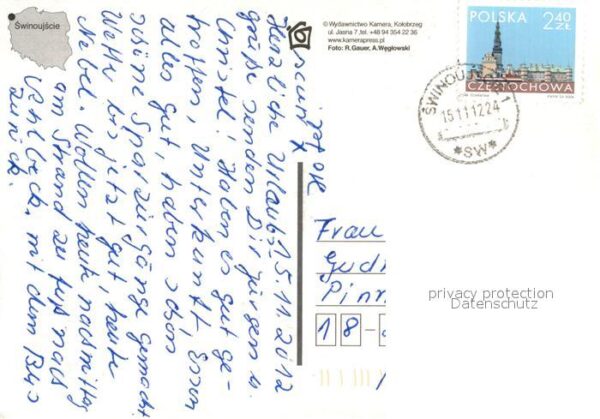 Świnoujście
© Wydawnictwo Kamera, Kołobrzeg
ul. Jasna 7, tel. +48 94 354 22 36
www.kamerapress.pl
Foto: R.Gauer, A.Węgłowski
POLSKA 2,40 ZŁ
CZĘSTOCHOWA
ŚWINOUJ
15 11 12 24
*SW*
15.11.2012
Herzliche Urlaubs-
grüße senden Dir Jürgen u.
Christel! Haben es gut ge-
troffen, Unterkunft, Essen
alles gut, haben schon
schöne Spaziergänge gemacht
Wetter bis jetzt gut, heute
Nebel. Wollen heute nachmittag
am Strand zu Fuß nach
Ahlbeck, mit dem Bus
zurück.
Frau
Gud
Pinn
18-
privacy protection
Datenschutz